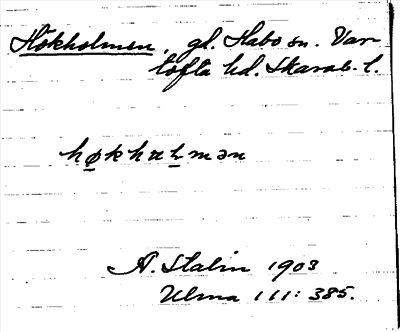 Hökholmen, gl. Habo sn. Var
tofta hd. Skarab. l.
høkhuḷmən
A. Stalin 1903
Ulma 111: 385.